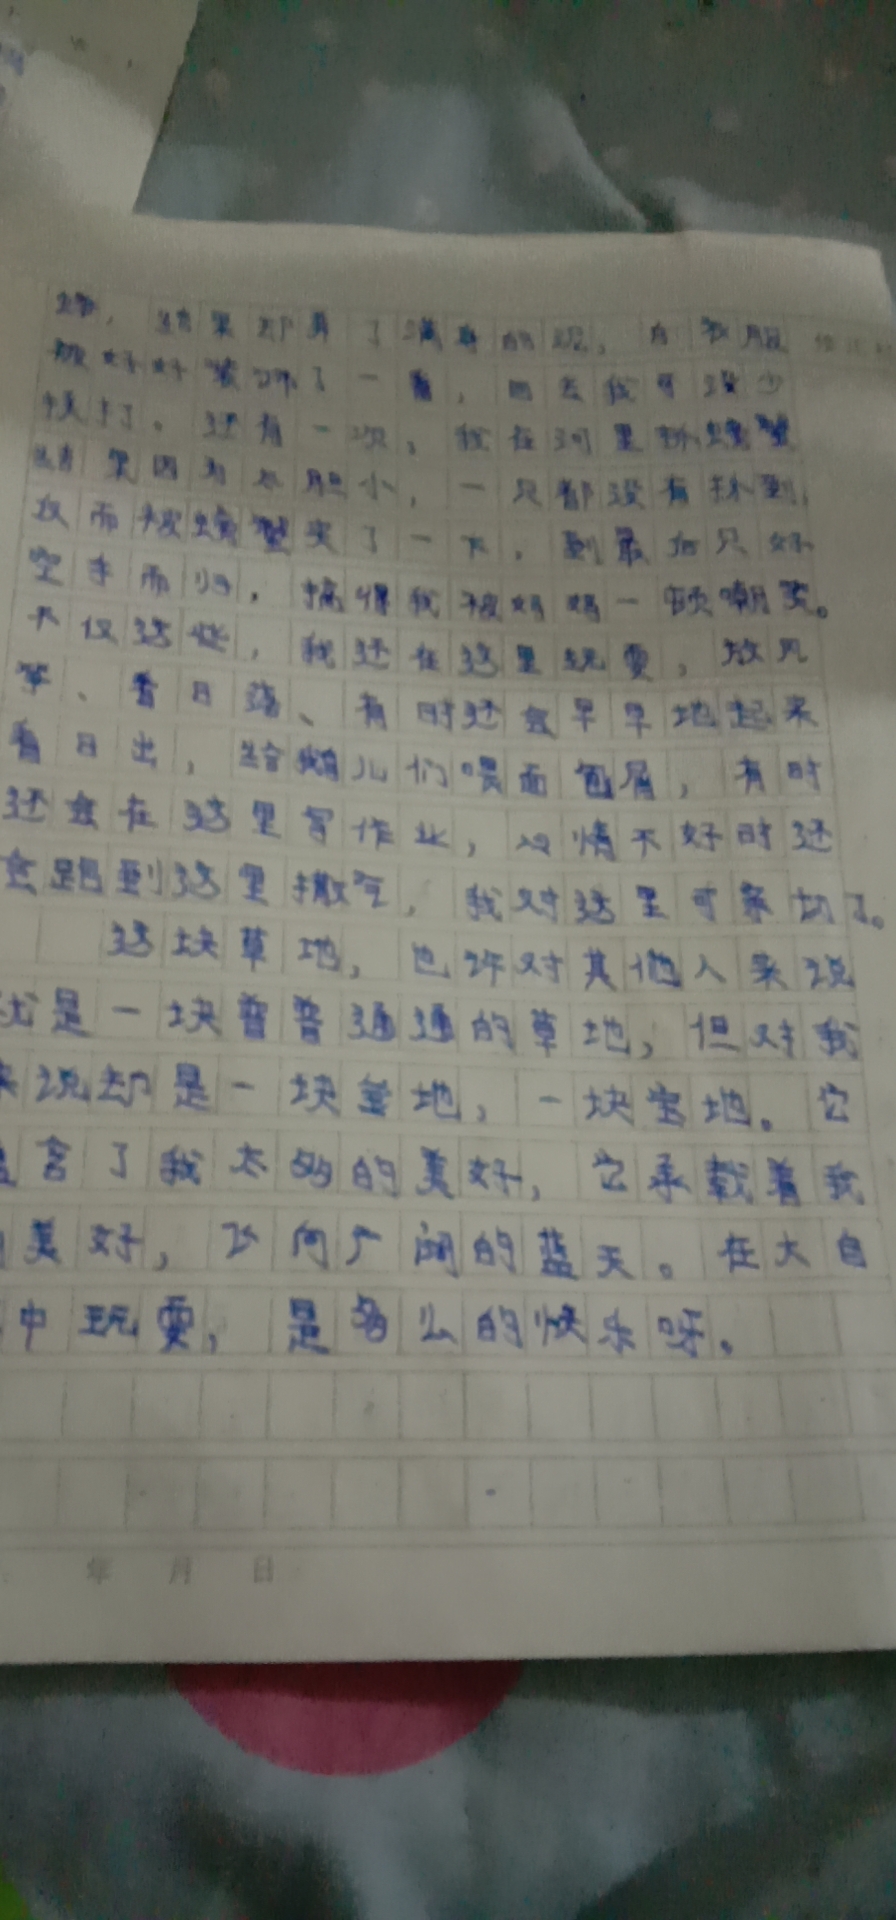 结果却弄了满身的泥，白衣服
被好好装饰了一番，回去我可没少
挨打。还有一次，我在河里抓螃蟹
结果因为太胆小，一只都没有抓到，
反而被螃蟹夹了一下，到最后只好
空手而归，搞得我被妈妈一顿嘲笑。
不仅这些，我还在这里玩耍，放风
筝、看日落、有时还会早早地起来
看日出，给鹅儿们喂面包屑，有时
还会在这里写作业，心情不好时还
会跑到这里撒气，我对这里可亲切了。
这块草地，也许对其他人来说
就是一块普普通通的草地，但对我
来说却是一块圣地，一块宝地。它
含了我太多的美好，它承载着我
美好，飞向广阔的蓝天。在大自
中玩耍，是多么的快乐呀。
年 月 日